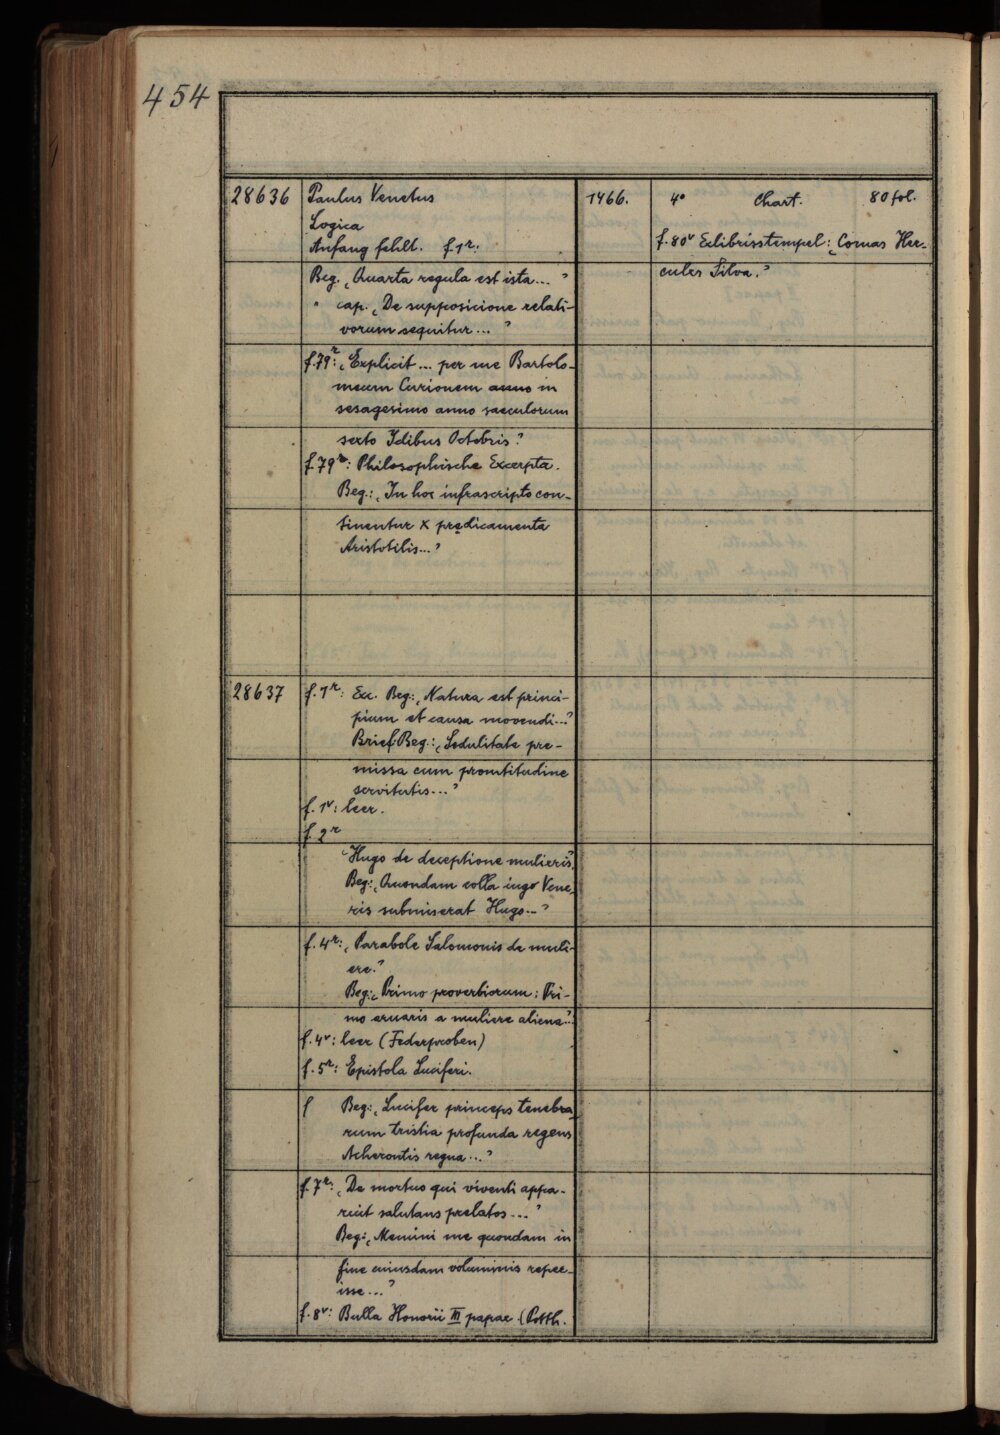 454
28636 Paulus Venetus 1466. 4° Chart. 80 fol.
Logica
Anfang fehlt. f. 1r. f. 80v Exlibrisstempel: „Comas Her-
Beg. „Quarta regula est ista..." cules Silva."
" cap. „De supposicione relati-
vorum sequitur..."
f. 79r: „Explicit ... per me Bartolo-
meum Curionem anno in
sesagesimo anno saeculorum
sexto Idibus Octobris."
f. 79v: Philosophische Excerpta.
Beg.: „In hoc infrascripto con-
tinentur X predicamenta
Aristotilis..."
28637 f. 1r: Exc. Beg.: „Natura est princi-
pium et causa movendi..."
Brief. Beg.: „Sedulitate pre-
missa cum promtitudine
servitutis..."
f. 1v: leer.
f. 2r
„Hugo de deceptione mulieris."
Beg.: „Quondam colla iugo Vene-
ris submiserat Hugo..."
f. 4r: „Parabole Salomonis de muli-
ere."
Beg.: „Primo proverbiorum: Pri-
mo eruaris a muliere aliena..."
f. 4v: leer (Federproben)
f. 5r: Epistola Luciferi.
f Beg.: „Lucifer princeps tenebra-
rum tristia profunda regens
Acherontis regna..."
f. 7r: „De mortuo qui viventi appa-
ruit salutans prelatos..."
Beg.: „Memini me quondam in
fine cuiusdam voluminis repee-
isse..."
f. 8v: Bulla Honorii III papae (Potth.